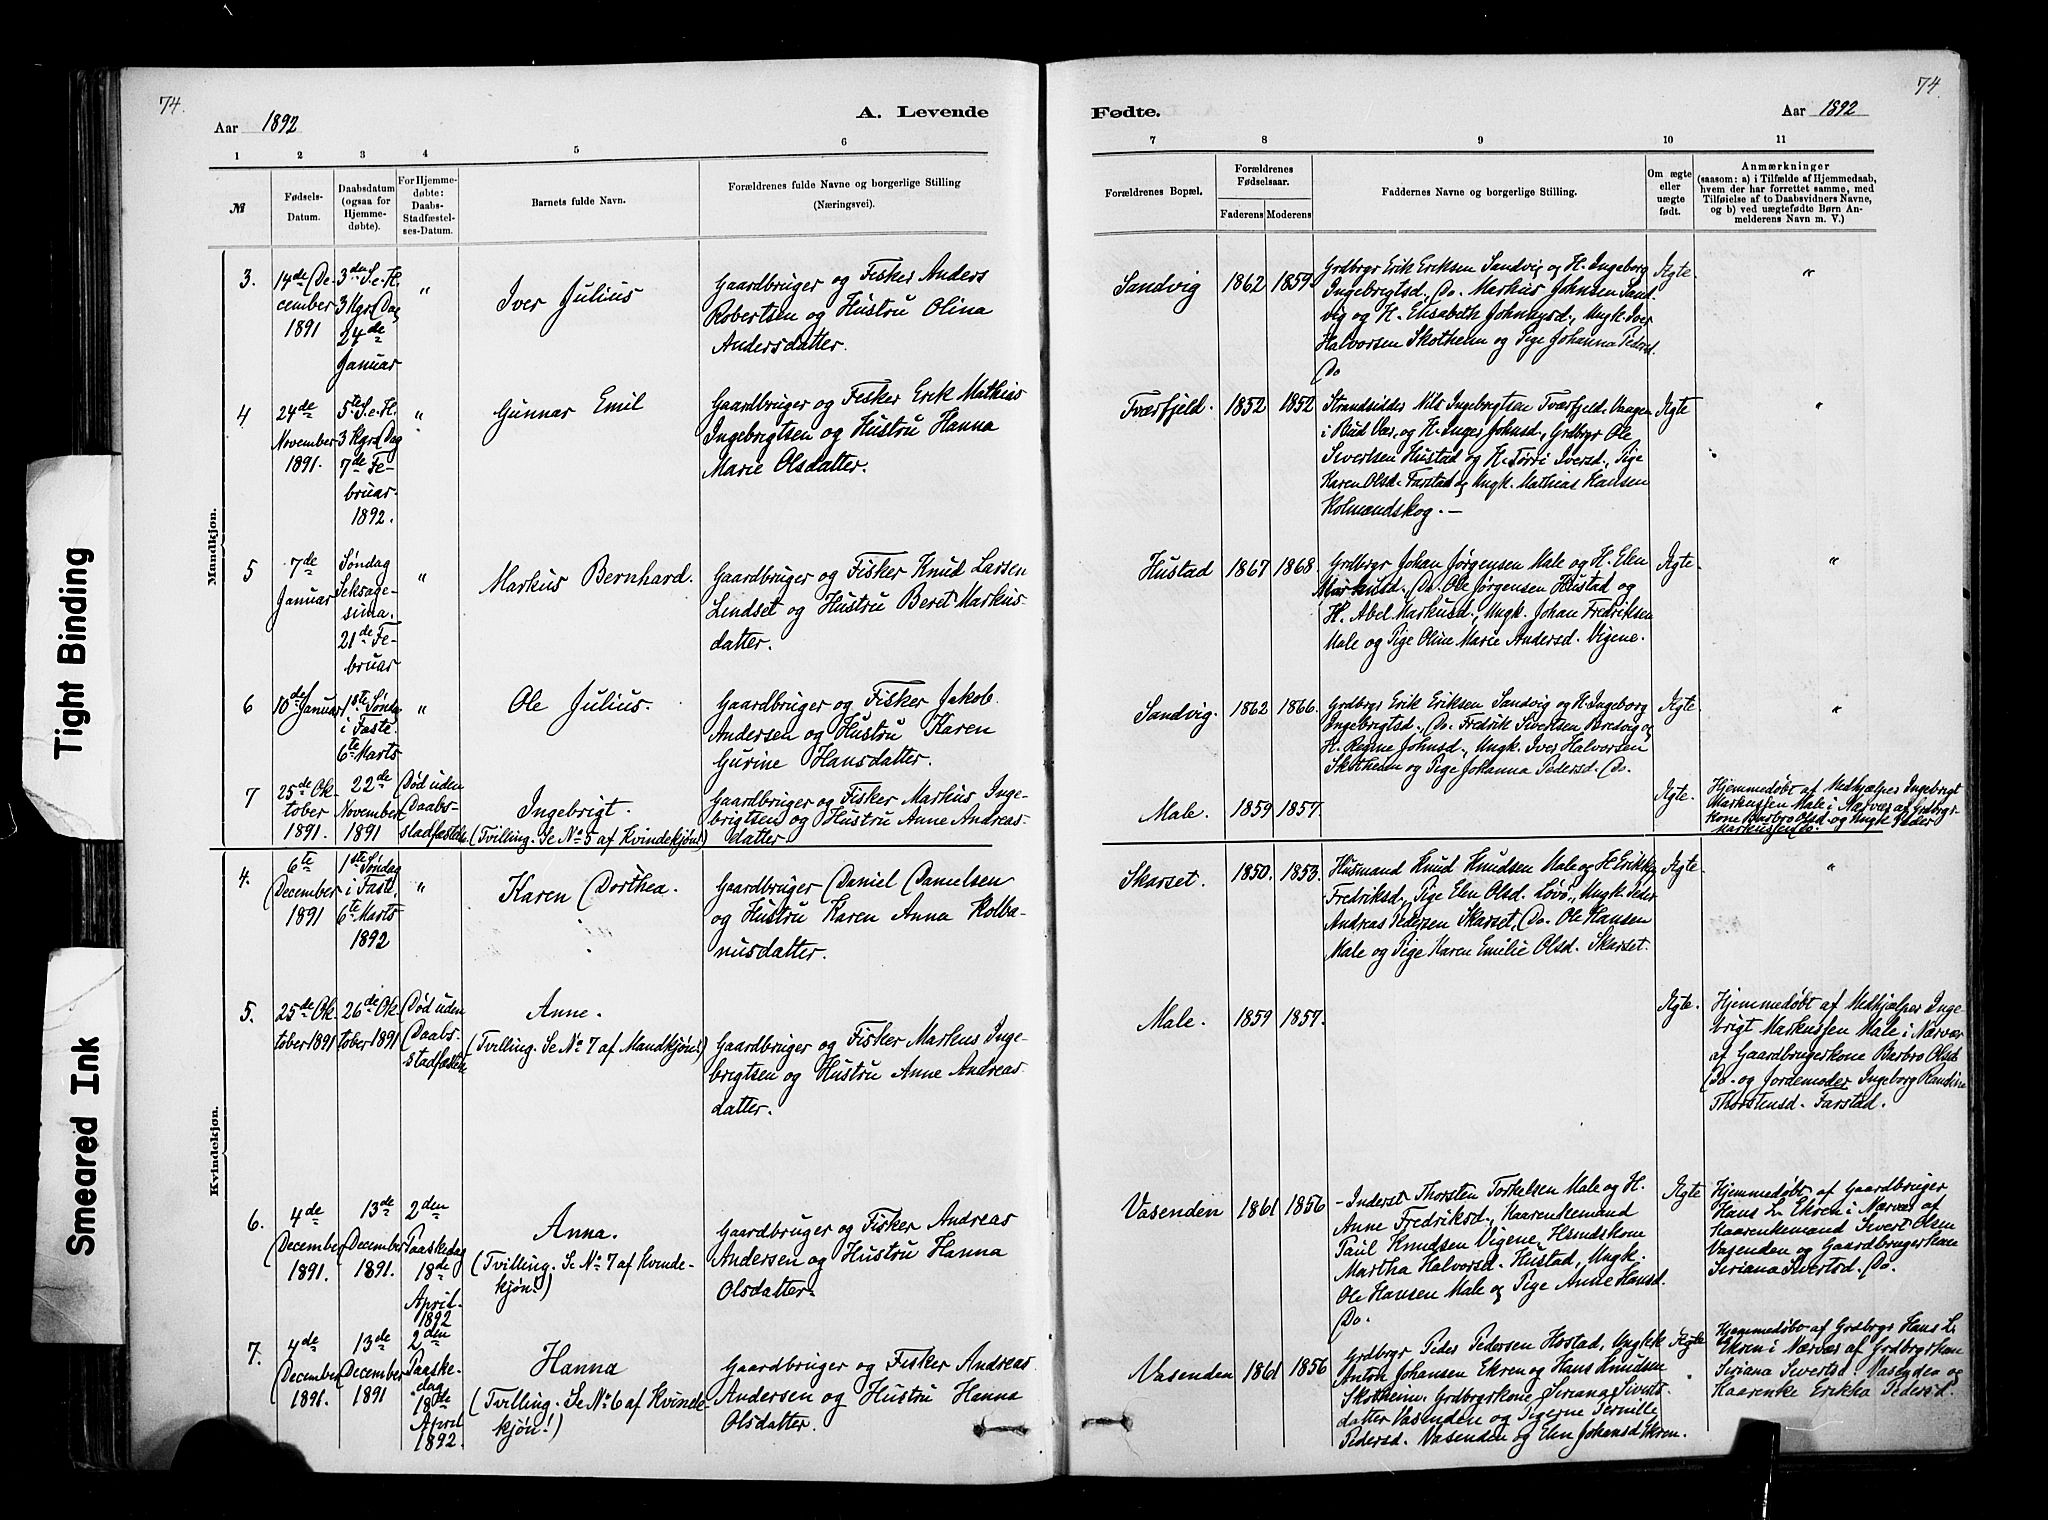 74.
Aar 1892
A. Levende
1 2 3 4 5 6
№
Fødsels-
Datum.
Daabsdatum
(ogsaa for
Hjemme-
døbte).
For Hjemme-
døbte:
Daabs-
Stadfæstel-
ses-Datum.
Barnets fulde Navn.
Forældrenes fulde Navne og borgerlige Stilling
(Næringsvei).
Mandkjøn.
3.
14de De-
cember
1891
3den S. e. H.
3 Kgrs Dag
24de
Januar
"
Iver Julius
Gaardbruger og Fisker Anders
Robertsen og Hustru Olina
Andersdatter.
4
24de
November
1891.
5te S. e. H.
3 Kgrs Dag
7de Fe-
bruar.
1892.
"
Gunnar Emil
Gaardbruger og Fisker Erik Mathias
Ingebrigtsen og Hustru Hanna
Marie Olsdatter.
5
7de
Januar
Søndag
Seksage-
sima.
21de Fe-
bruar
"
Markus Bernhard.
Gaardbruger og Fisker Knud Larsen
Lindset og Hustru Beret Markus-
datter.
6
10de Januar
1ste Søndag
i Faste.
6te Marts
"
Ole Julius.
Gaardbruger og Fisker Jakob
Andersen og Hustru Karen
Gurine Hansdatter.
7
25de Ok-
tober
1891.
22de
November
1891
Død uden
Daabs-
stadfæstelse.
Ingebrigt.
(Tvilling. Se No 5 af Kvindekjøn!)
Gaardbruger og Fisker Markus Inge-
brigtsen og Hustru Anne Andreas-
datter.
Kvindekjøn.
4.
6te
December
1891
1ste Søndag
i Faste,
6te Marts
1892
"
Karen Dorthea.
Gaardbruger Daniel Danielsen
og Hustru Karen Anna Kolba-
nusdatter.
5.
25de Ok-
tober 1891
26de Ok-
tober 1891
Død uden
Daabs-
stadfæstelse
Anne.
(Tvilling. Se No 7 af Mandkjøn!)
Gaardbruger og Fisker Markus Inge-
brigtsen og Hustru Anne Andreas-
datter.
6.
4de
December
1891.
13de
December
1891.
2den
Paaskedag
18de
April.
1892
Anna.
(Tvilling. Se No 7 af Kvinde-
kjøn!)
Gaardbruger og Fisker Andreas
Andersen og Hustru Hanna
Olsdatter.
7.
4de
December
1891.
13de
December
1891
2den
Paaske-
dag
18de
April
1892.
Hanna
(Tvilling. Se No 6 af Kvinde-
kjøn!)
Gaardbruger og Fisker Andreas
Andersen og Hustru Hanna
Olsdatter.
74.
Fødte.
Aar 1892
7 8 9 10 11
Forældrenes Bopæl.
Forældrenes
Fødselsaar.
Faderens Moderens
Faddernes Navne og borgerlige Stilling.
Om ægte
eller
uægte
født.
Anmærkninger
(saasom: a) i Tilfælde af Hjemmedaab,
hvem der har forrettet samme, med
Tilføielse af to Daabsvidners Navne,
og b) ved uægtefødte Børn An-
melderens Navn m. V.)
Sandvig
1862 1859.
Grdbrgr Erik Eriksen Sandvig og H. Ingeborg
Ingebrigtsd., Do. Markus Johnsen Sand-
vig og H. Elisabeth Johnnysd., Ungk. Iver
Halvorsen Skotheim og Pige Johanna Pedersd.
Do
Ægte
"
Tværfjeld.
1852 1852
Strandsidder Nils Ingebrigtsen Tværfjeld. Vaagen
i Bud Vær, og H. Inger Johnsd., Grdbrgr Ole
Sivertsen Hustad og H. Torri Iversd., Pige
Karen Olsd. Farstad og Ungk. Mathias Hansen
Holmendskog. —
Ægte
"
Hustad
1867 1868
Grdbrgr Johan Jørgensen Male og H. Elen
Markusd., Do. Ole Jørgensen Hustad og
H. Abel Markusd., Ungk. Johan Fredriksen
Male og Pige Oline Marie Andersd. Vigene.
Ægte
"
Sandvig.
1862 1866.
Grdbrgr Erik Eriksen Sandvig og H. Ingeborg
Ingebrigtsd., Do. Fredrik Sivertsen Bredvig og
H. Regine Johnsd., Ungk. Iver Halvorsen
Skotheim og Pige Johanna Pedersd. Do.
Ægte.
"
Male.
1859 1857.
Ægte.
Hjemmedøbt af Medhjælper Ingebrigt
Markussen Male i Nærvær af Grdbrgr-
kone Barbro Olsd. og Ungk Peder
Markussen Do.
Skarset.
1850. 1853.
Husmand Knud Knudsen Male og H. Erikka
Fredriksd., Pige Elen Olsd. Løvø, Ungk. Peder
Andreas Pedersen Skarset, Do. Ole Hansen
Male og Pige Karen Emilie Olsd. Skarset.
Ægte.
"
Male.
1859 1857.
Ægte.
Hjemmedøbt af Medhjælper Inge-
brigt Markussen Male i Nærvær
af Gaardbrugerkone Berbro Olsd.
Do. og Jordemoder Ingeborg Randine
Thorstensd. Farstad.
Vasenden
1861 1856
- Inderst Thorsten Torkelsen Male og H.
Anne Fredriksd., Kaarenkemand
Paul Knudsen Vigene, Hsmdskone
Martha Halvorsd. Hustad, Ungk.
Ole Hansen Male og Pige Anne Hansd.
Do.
Ægte
Hjemmedøbt af Gaardbruger
Hans L. Ekren i Nærvær af
Kaarenkemand Sivert Olsen
Vasenden og Gaardbrugerkone
Siriana Sivertsd. Do.
Vasenden
1861 1856
Grdbrgr Peder Pedersen Hostad, Ungkk
Anton Johansen Ekren og Hans Knudsen
Skotheim. Grdbrgrkone Siriana Siverts-
datter Vasenden og Pigerne Pernille
Pedersd. Vasenden og Elen Johansd Ekren.
Ægte
Hjemmedøbt af Grdbrgr Hans L.
Ekren i Nærvær af Grdbrgrkone
Siriana Sivertsd. Vasenden og
Kaarenke Erikka Pedersd.
Tight Binding
Smeared Ink